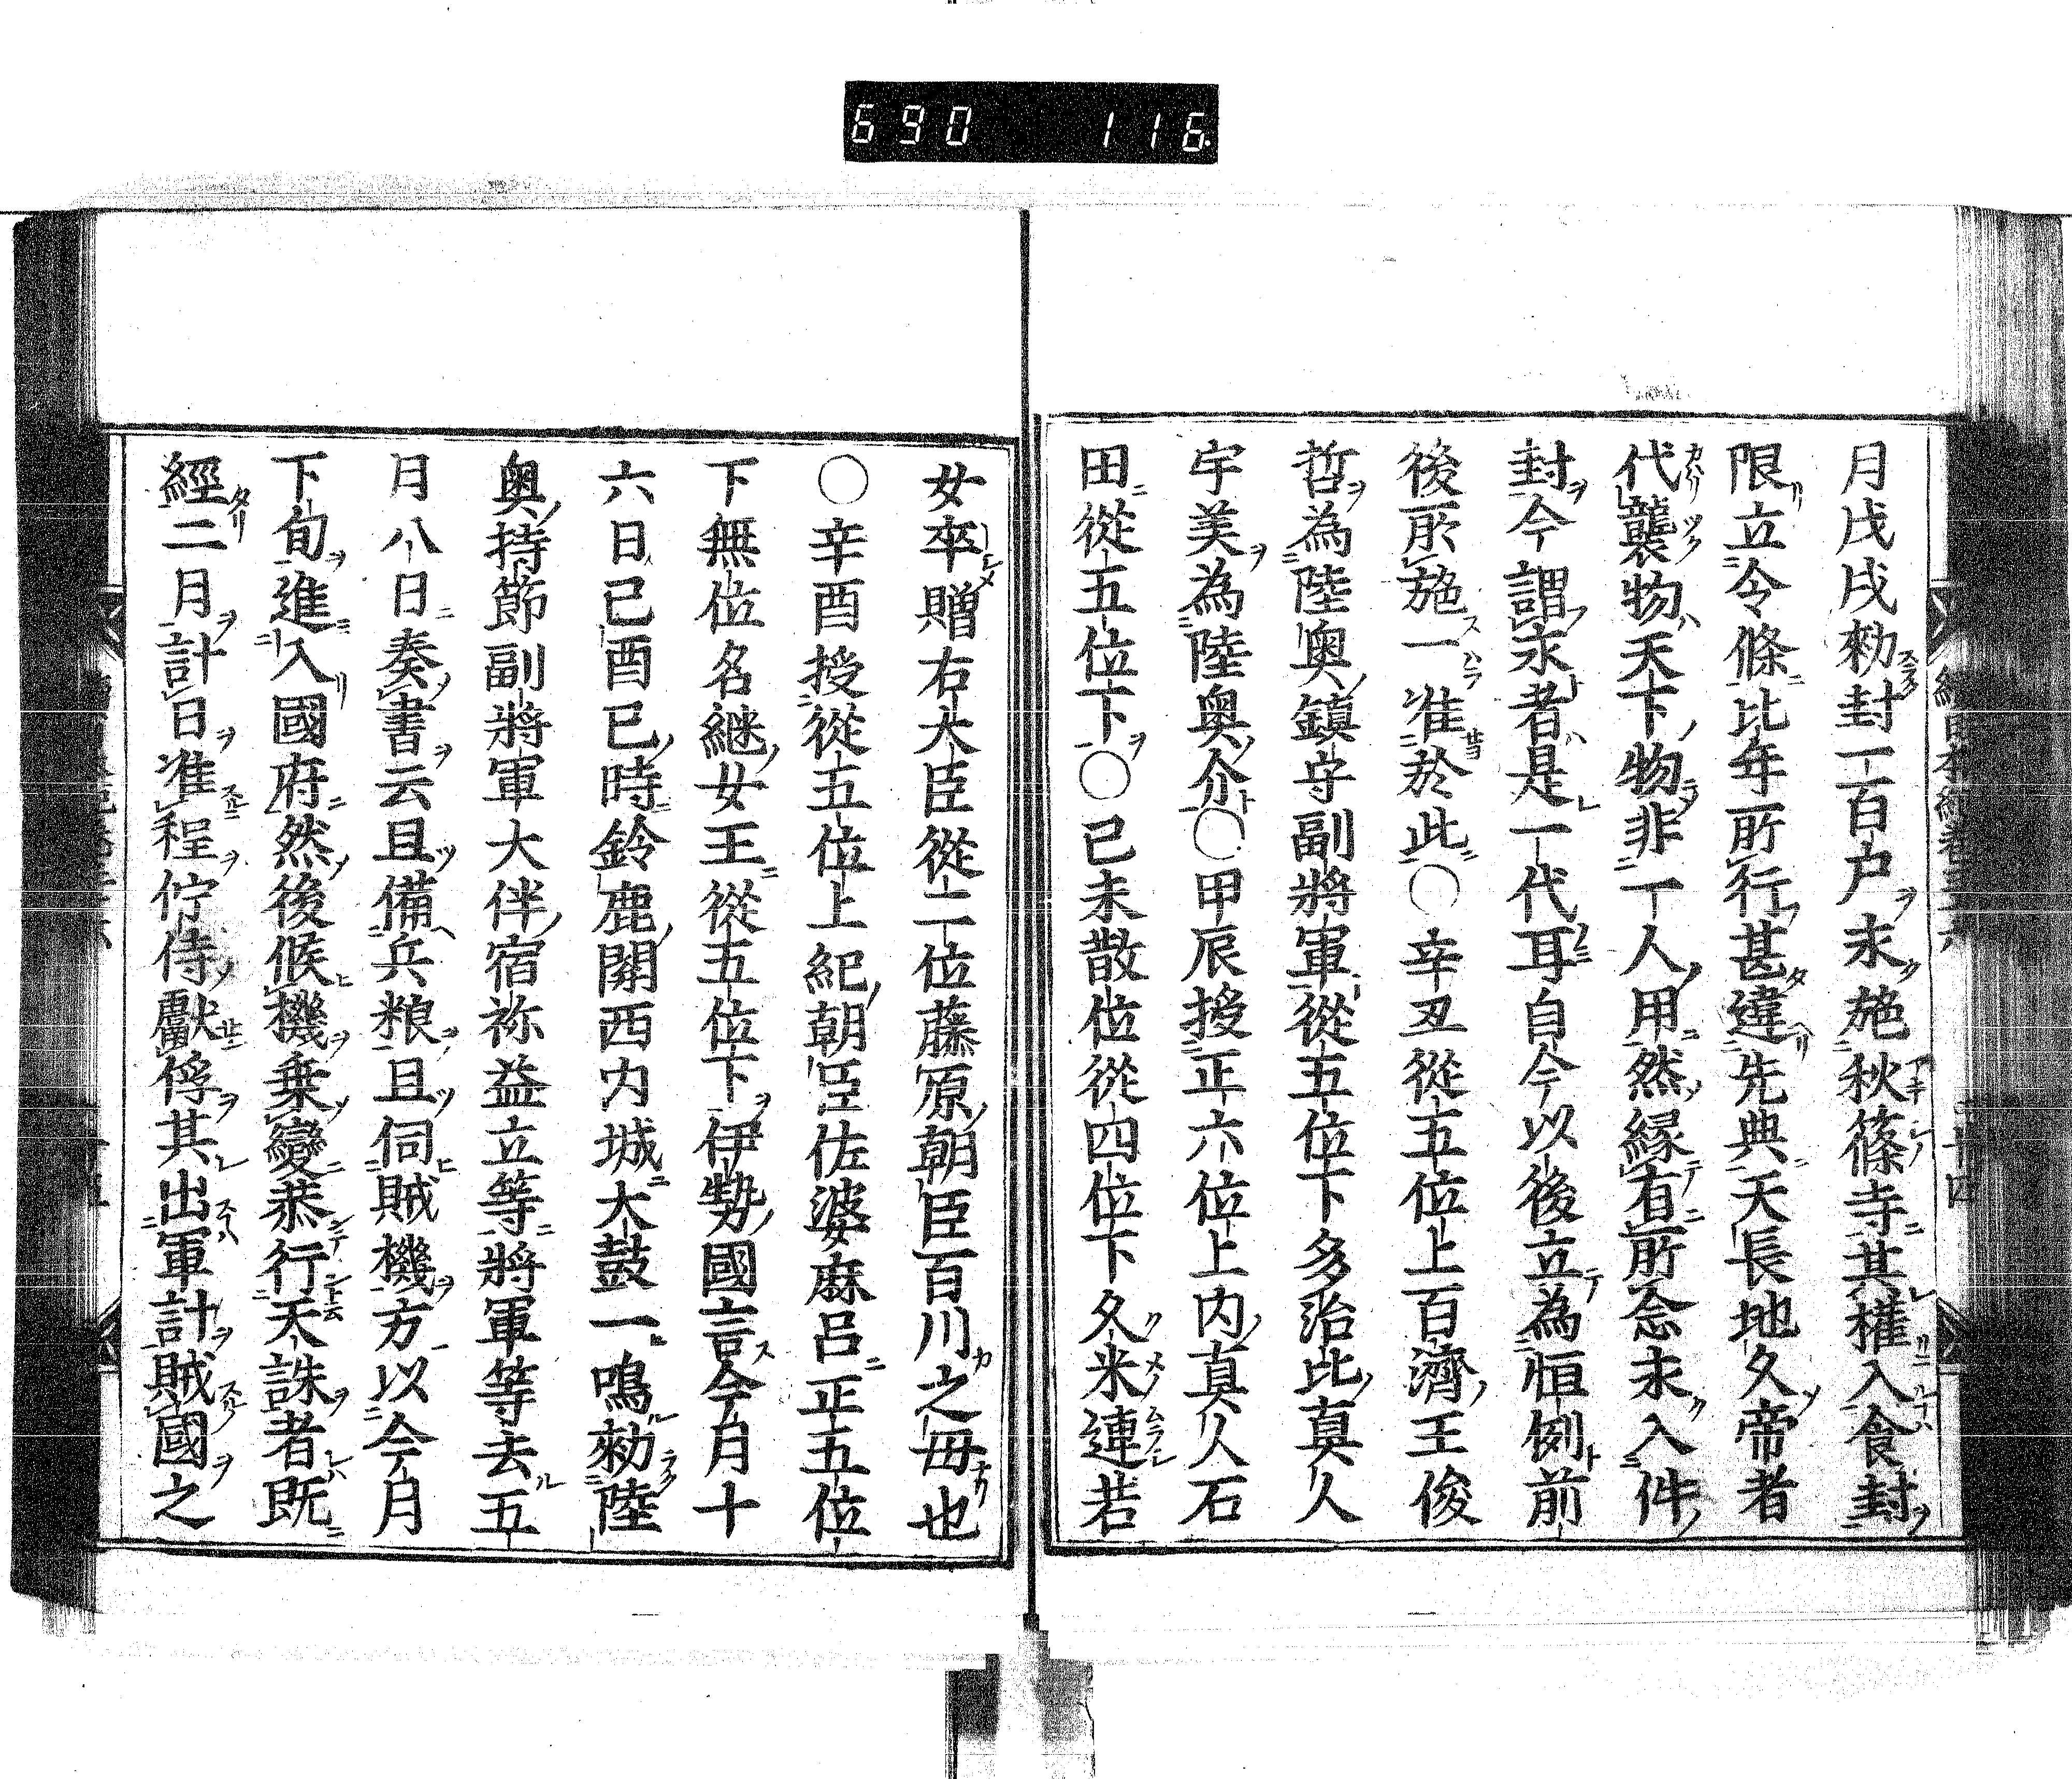 690 116
月戊戌勑封一百户永施秋篠寺其權入食封
限立令條比年所行甚違先典天長地久帝者
代襲物天下物非一人用然緣有所念永入件
封今謂永者是一代耳自今以後立為恒例前
後所施一准於此〇辛丑從五位上百濟王俊
哲為陸奧鎮守副將軍從五位下多治比真人
宇美為陸奧介〇甲辰授正六位上内真人石
田從五位下〇己未散位從四位下久米連若
女卒贈右大臣從二位藤原朝臣百川之母也
〇辛酉授從五位上紀朝臣佐婆麻呂正五位
下無位名継女王從五位下伊勢國言今月十
六日己酉巳時鈴鹿關西内城大鼓一鳴勑陸
奧持節副將軍大伴宿祢益立等將軍等去五
月八日奏書云且備兵粮且伺賊機方以今月
下旬進入國府然後候機乗變恭行天誅者既
經二月計日准程佇待獻俘其出軍計賊國之